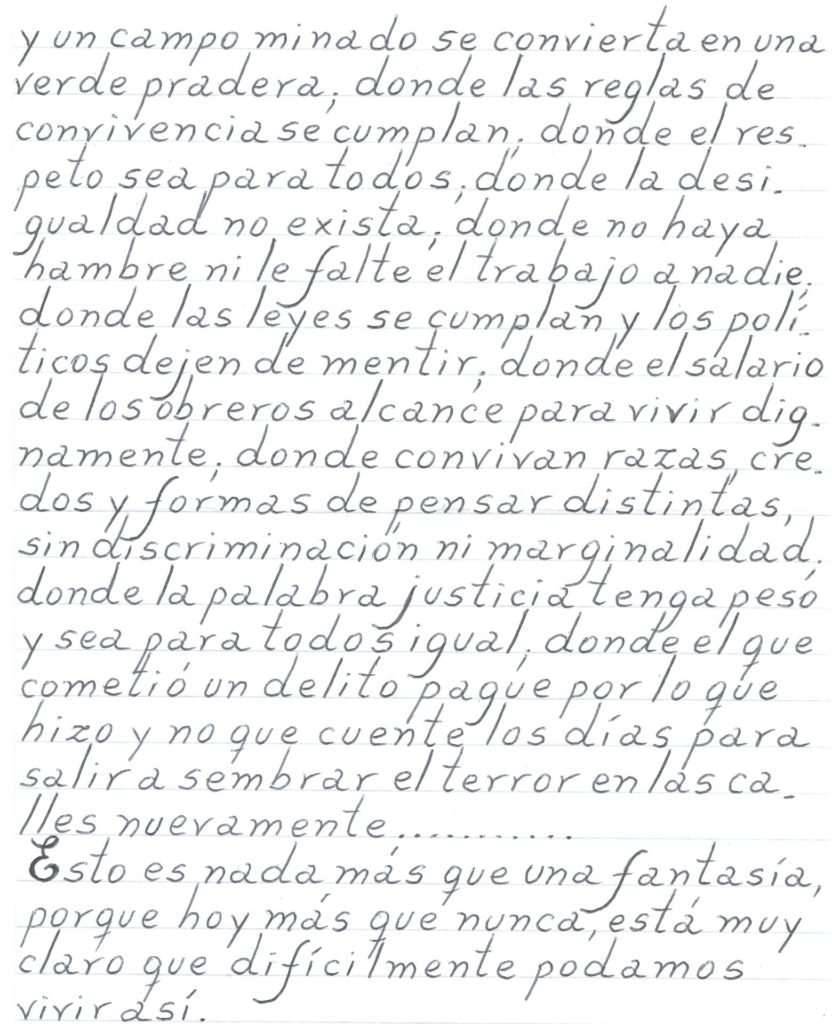 y un campo minado se convierta en una
verde pradera; donde las reglas de
convivencia se cumplan; donde el res-
peto sea para todos; donde la desi-
gualdad no exista; donde no haya
hambre ni le falte el trabajo a nadie;
donde las leyes se cumplan y los polí-
ticos dejen de mentir; donde el salario
de los obreros alcance para vivir dig-
namente; donde convivan razas, cre-
dos y formas de pensar distintas,
sin discriminación ni marginalidad;
donde la palabra justicia tenga peso
y sea para todos igual; donde el que
cometió un delito pague por lo que
hizo y no que cuente los días para
salir a sembrar el terror en las ca-
lles nuevamente............
Esto es nada más que una fantasía,
porque hoy más que nunca, está muy
claro que difícilmente podamos
vivir así.